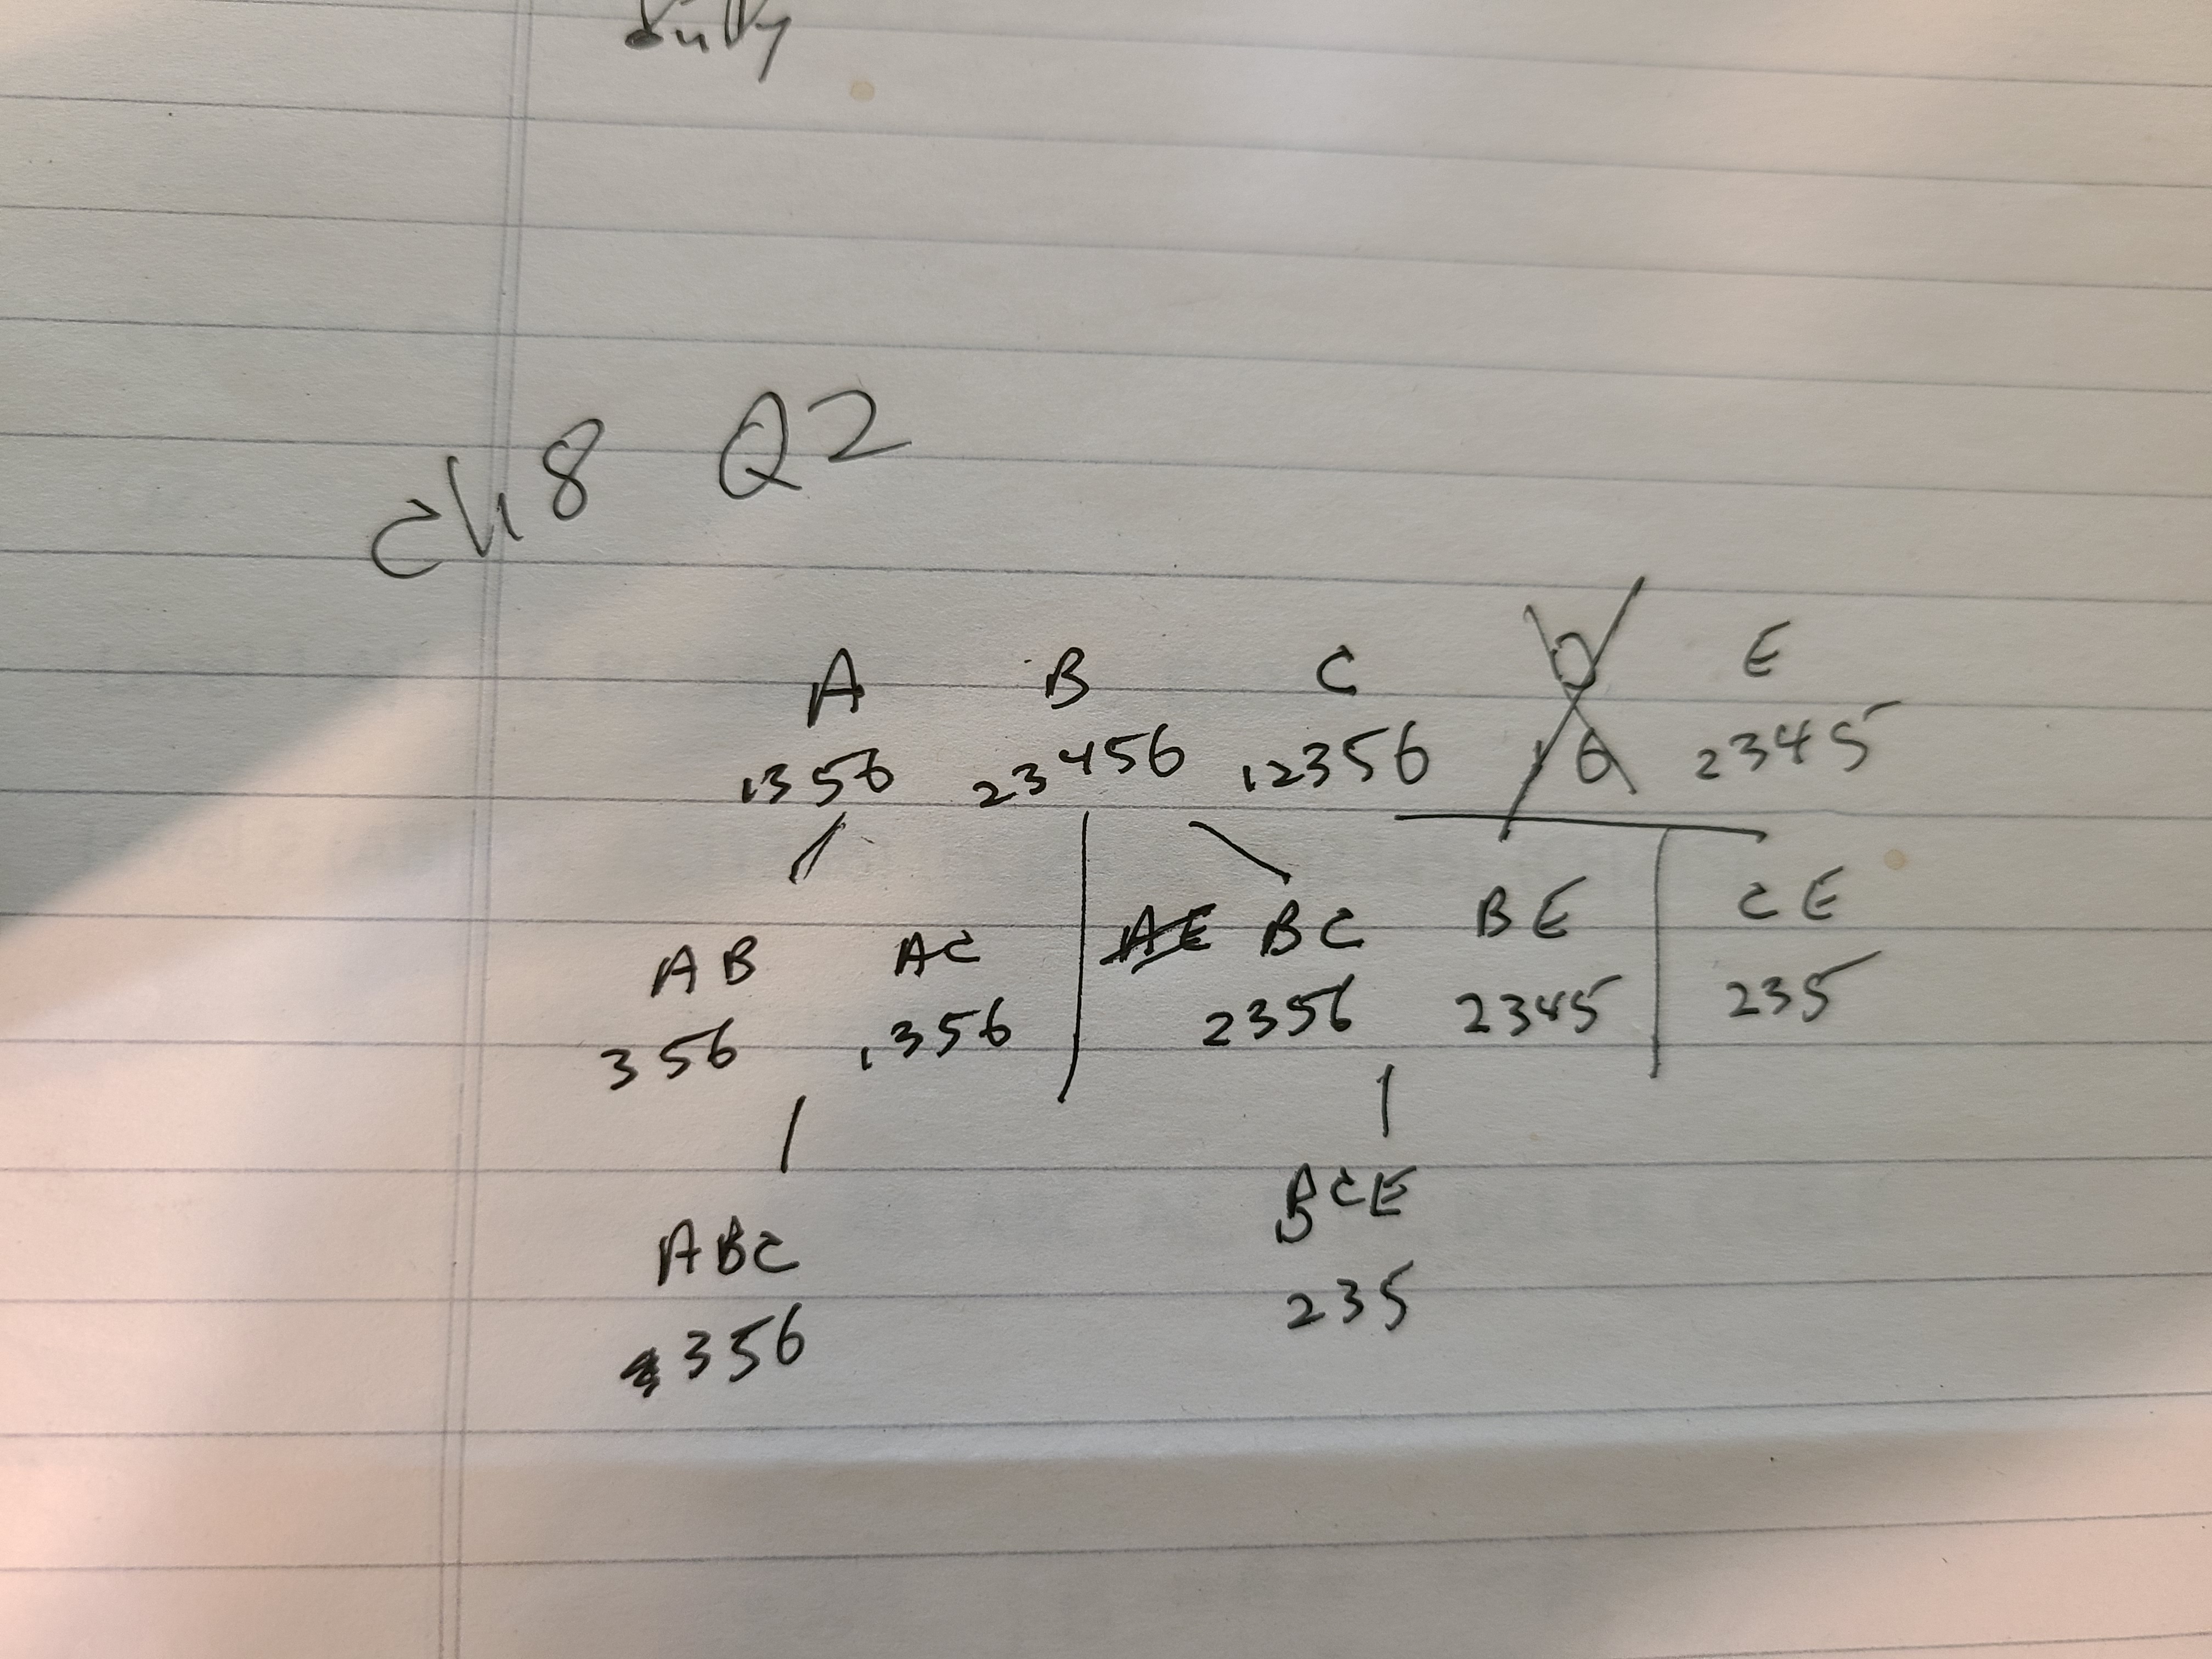 CH8 Q2
A B C D E
1356 23456 12356 6 2345
AB AC AE BC BE CE
356 1356 2356 2345 235
ABC BCE
356 235